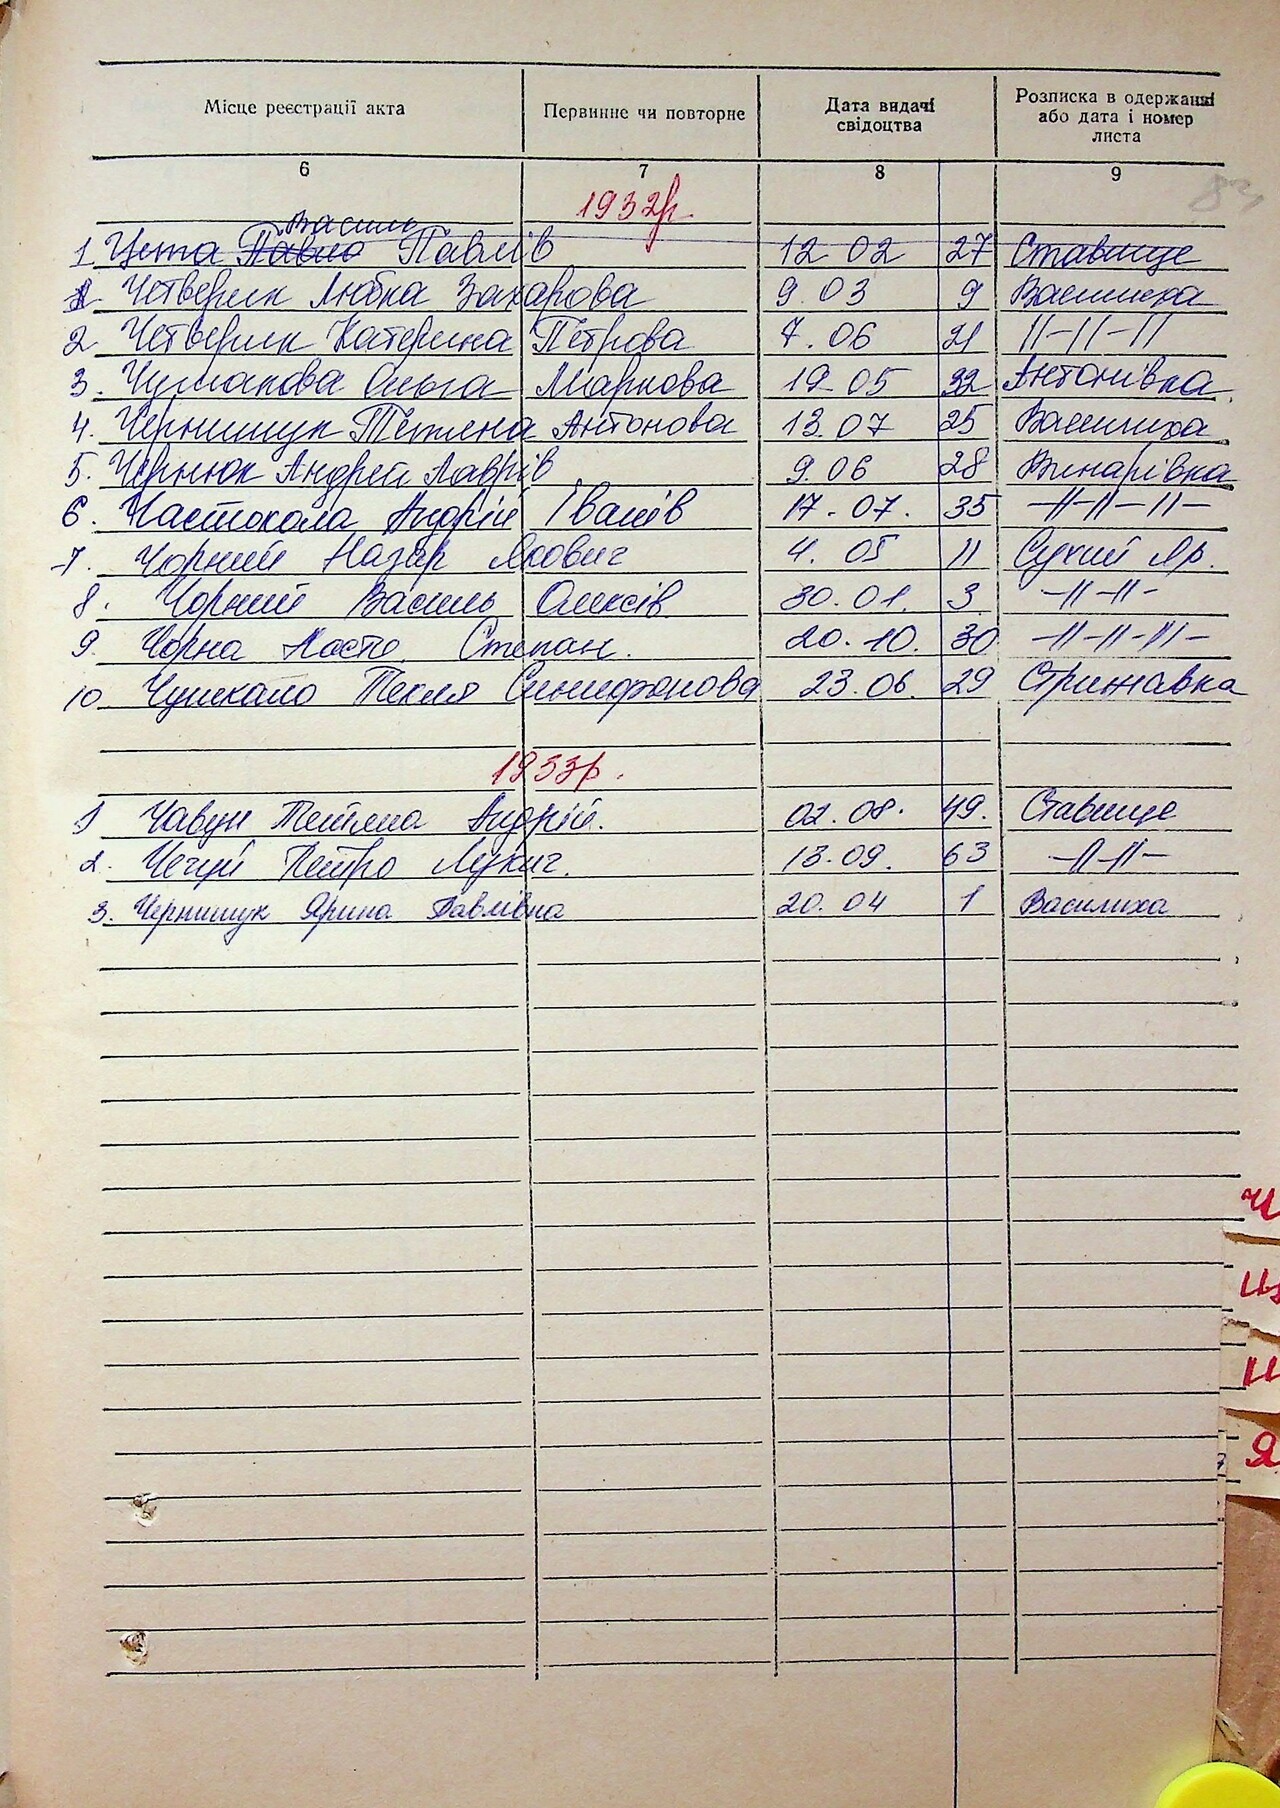 Місце реєстрації акта Первинне чи повторне Дата видачі свідоцтва Розписка в одержанні або дата і номер листа
6 7 8 9
83
1932р.
Василь
1 Цюпа Павло Павлів 12 02 27 Ставище
1. Четверик Любка Захарова 9.03 9 Василиха
2. Четверик Катерина Петрова 7.06 21 //-//-//
3. Чумакова Ольга Маркова 19 05 32 Антонівка
4. Чернишук Тетяна Антонова 13.07 25 Василиха
5. Чернюк Андрей Лаврів 9.06 28 Винарівка
6. Частокола Андрій Іванів 17.07. 35 -//-//-//-
7. Чорний Назар Якович 4.05 11 Сухий Яр.
8. Чорний Василь Олексів. 30.01. 3 -//-//-
9. Чорна Настя Степан. 20.10. 30 -//-//-//-
10. Чупкало Текля Синифонова 23.06. 29 Стрижавка
1933р.
1 Чавун Тетяна Андрій. 02.08. 49. Ставище
2. Чегуй Петро Лукич. 13.09. 63 -//-//-
3. Чернишук Ярина Павлівна 20.04 1 Василиха
Ч
Ш
Я